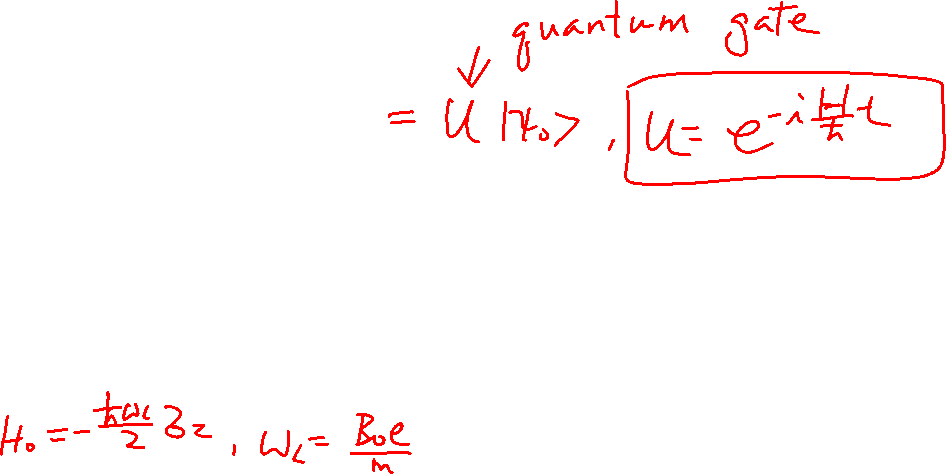 quantum gate
= U |ψ₀>, U = e^{-i\frac{H}{ħ}t}
H₀ = -\frac{ħω_L}{2} σ_z, ω_L = \frac{B₀e}{m}